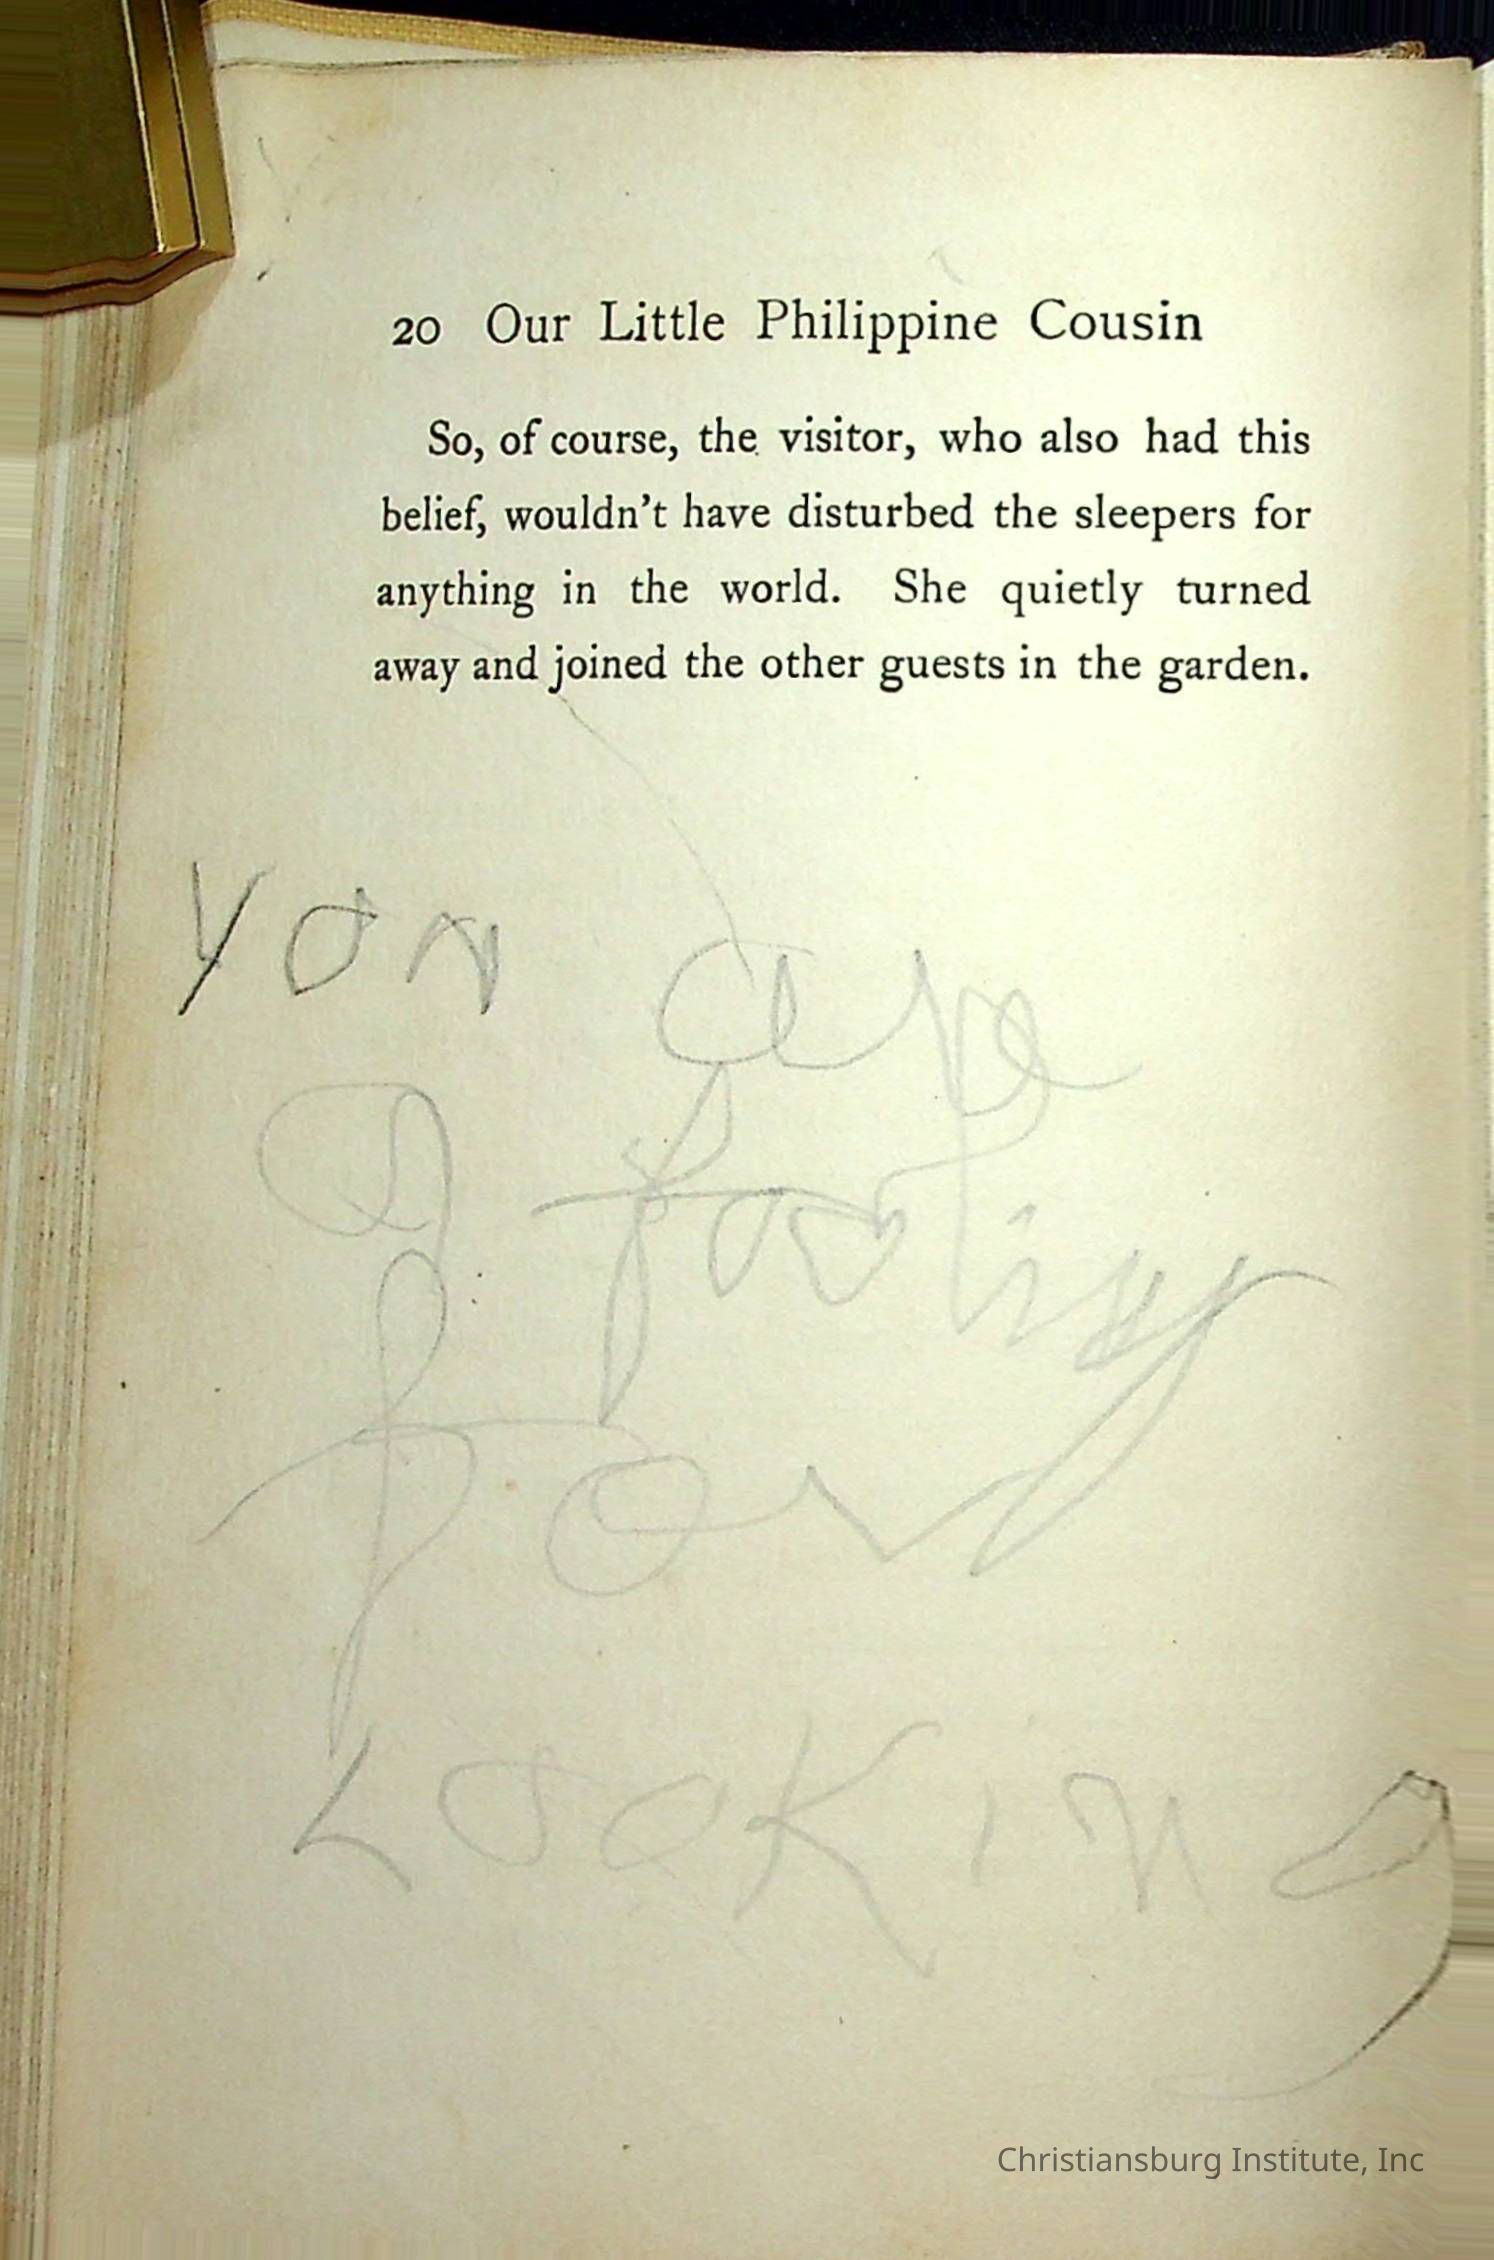 20 Our Little Philippine Cousin
So, of course, the visitor, who also had this
belief, wouldn't have disturbed the sleepers for
anything in the world. She quietly turned
away and joined the other guests in the garden.
You are
a fool
for
LOOKING
Christiansburg Institute, Inc